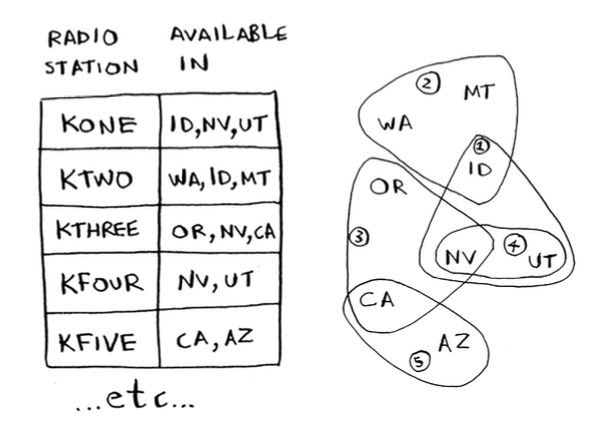 RADIO STATION AVAILABLE IN
KONE ID,NV,UT
KTWO WA,ID,MT
KTHREE OR,NV,CA
KFOUR NV,UT
KFIVE CA,AZ
...etc...
2
MT
WA
1
ID
OR
3
4
NV
UT
CA
AZ
5